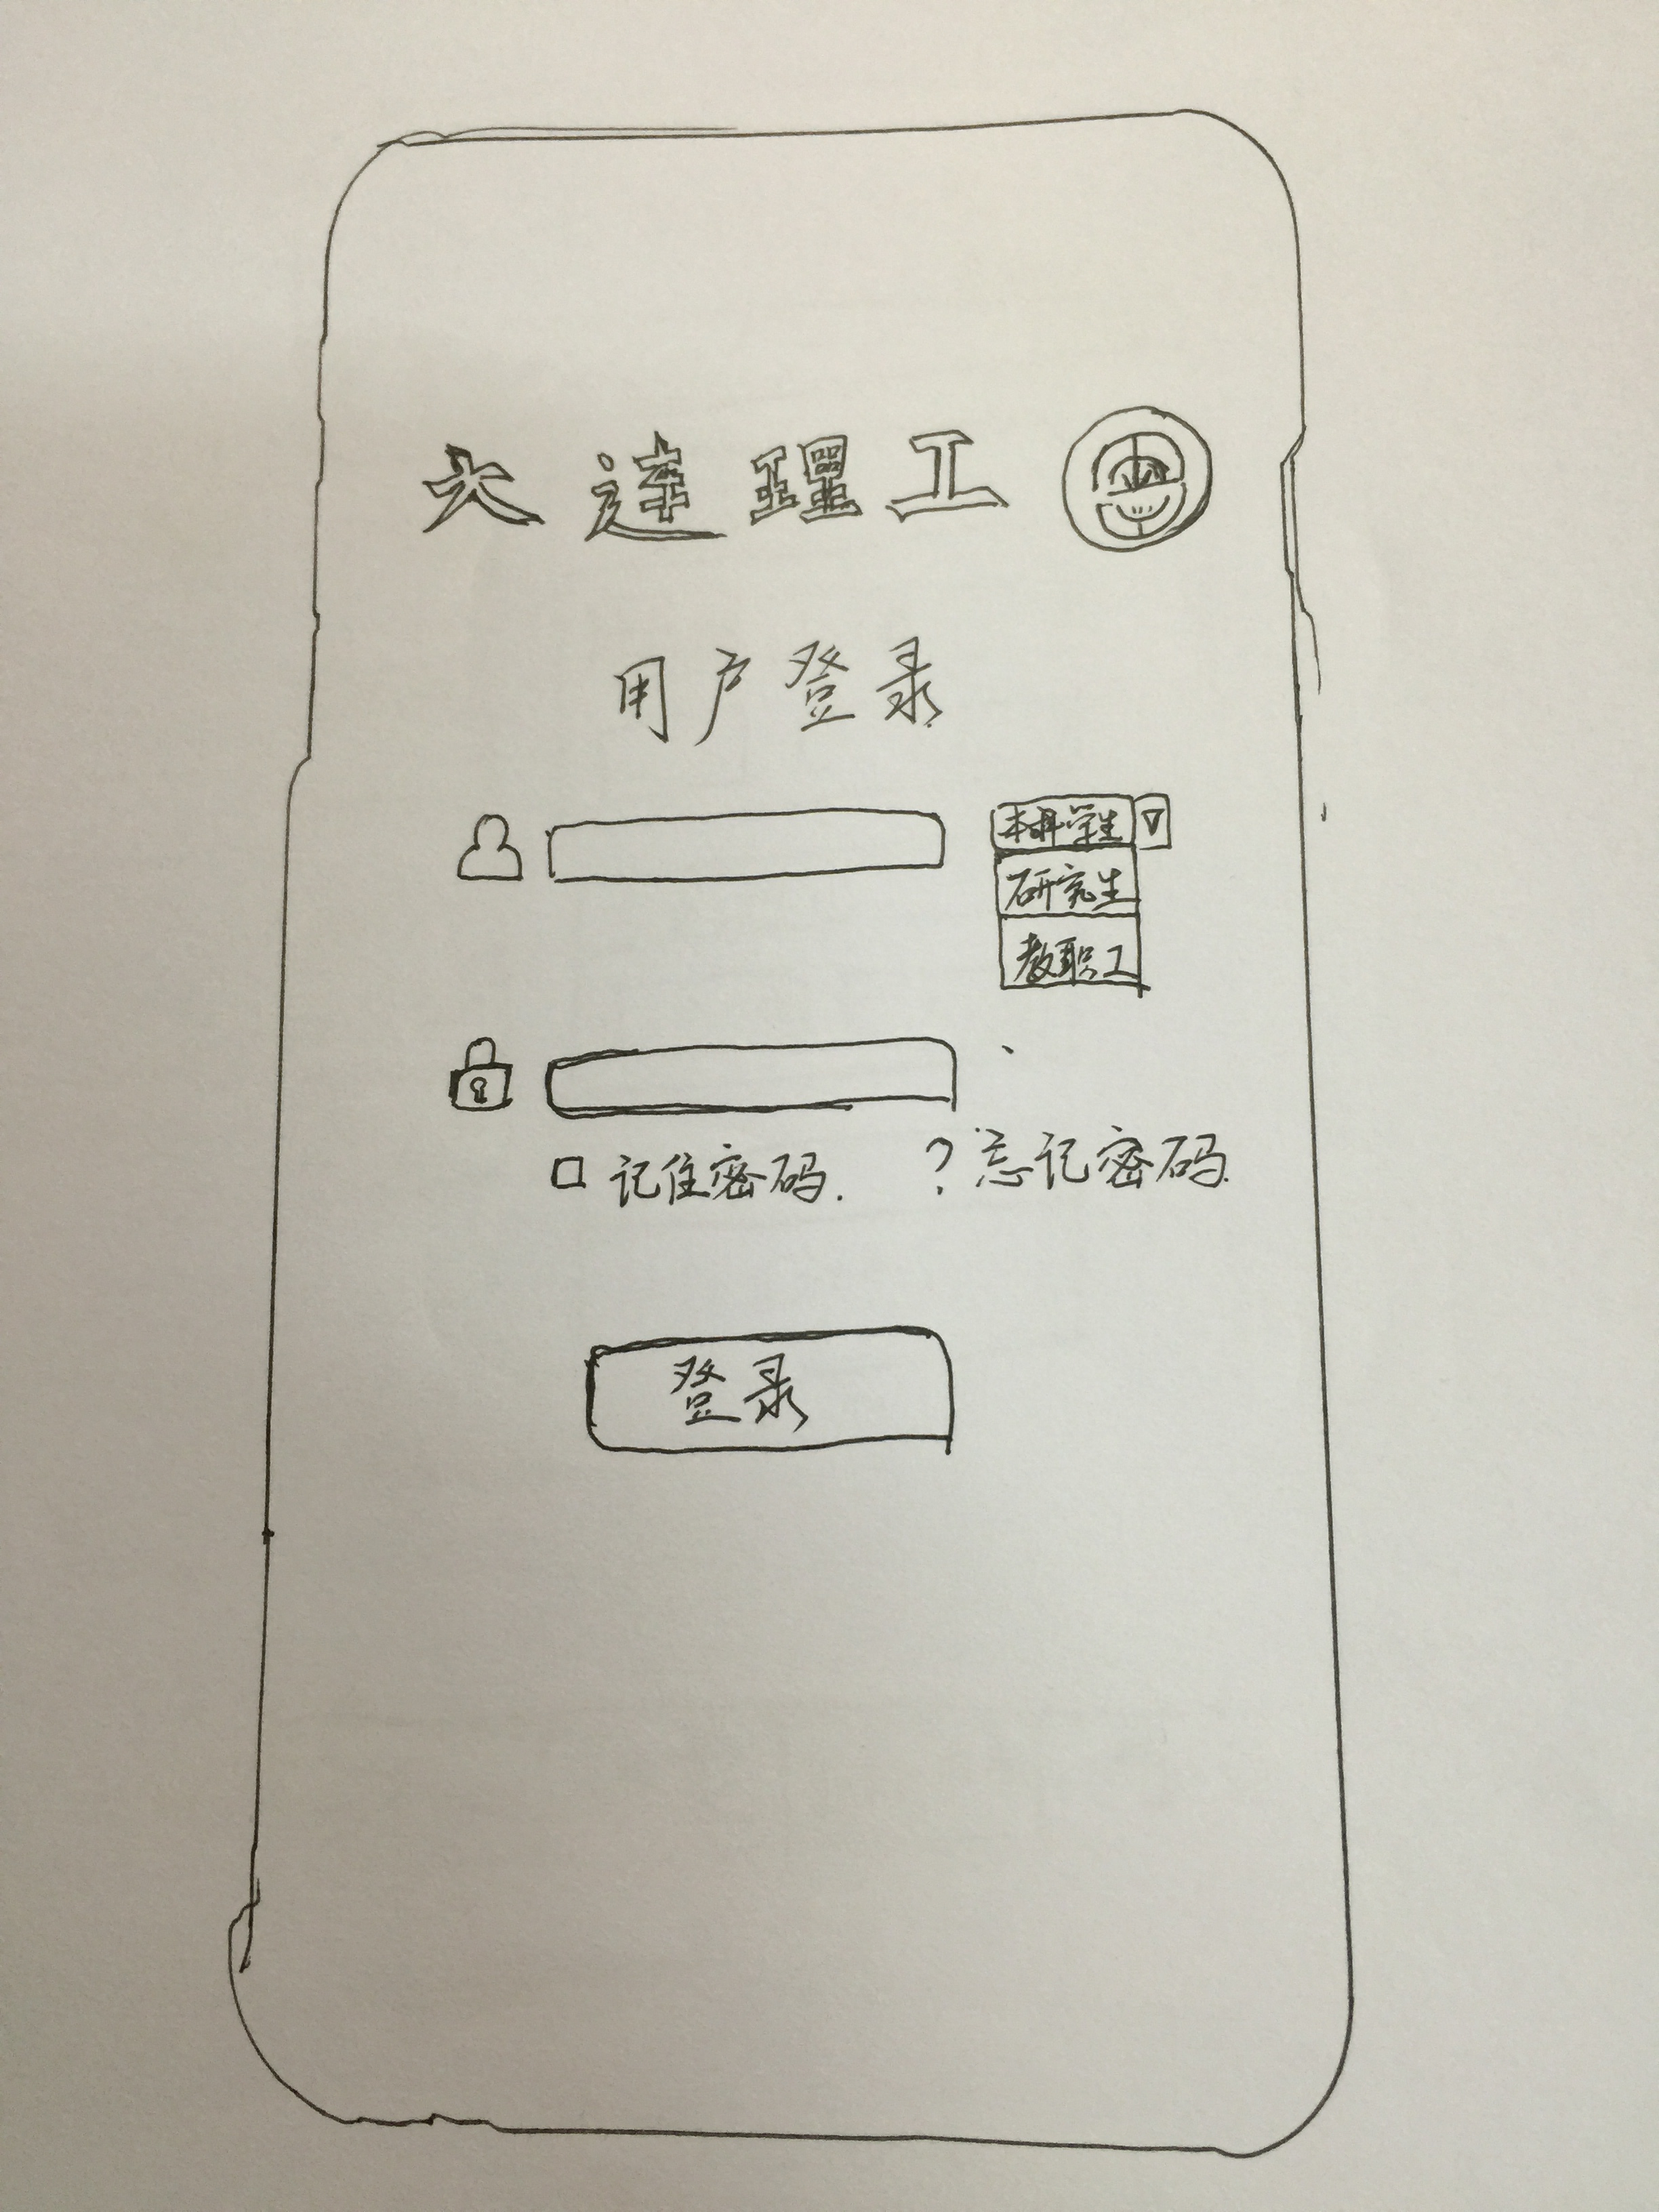 大连理工
用户登录
本科学生
研究生
教职工
记住密码.
?忘记密码.
登录